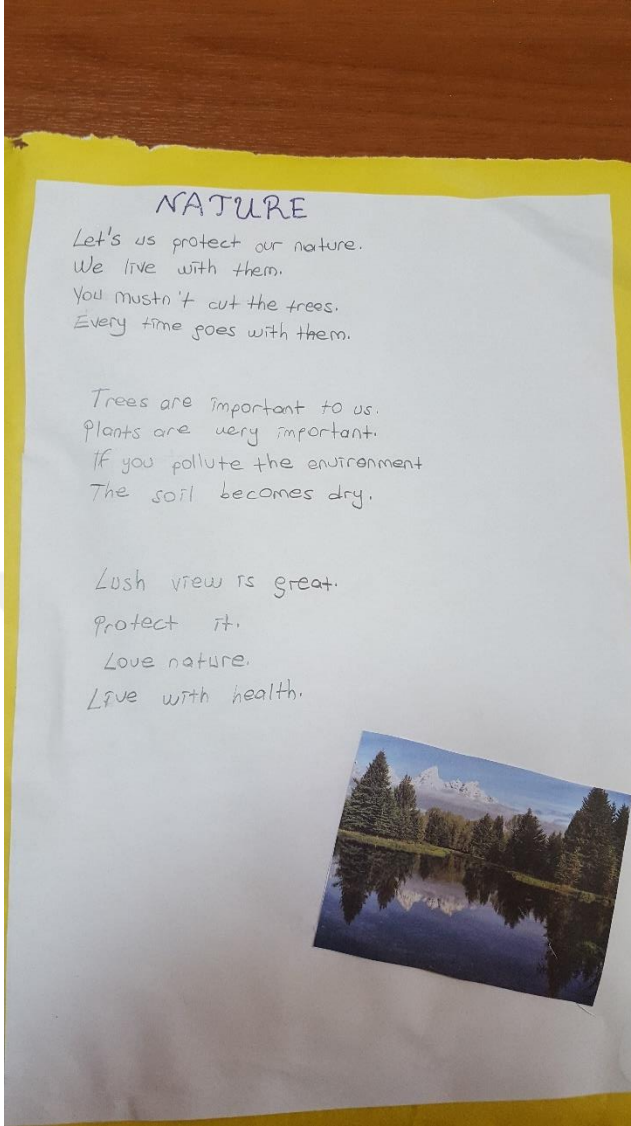 NATURE
Let's us protect our nature.
We live with them.
You mustn't cut the trees.
Every time goes with them.
Trees are important to us.
Plants are very important.
If you pollute the environment
The soil becomes dry.
Lush view is great.
Protect it.
Love nature.
Live with health.